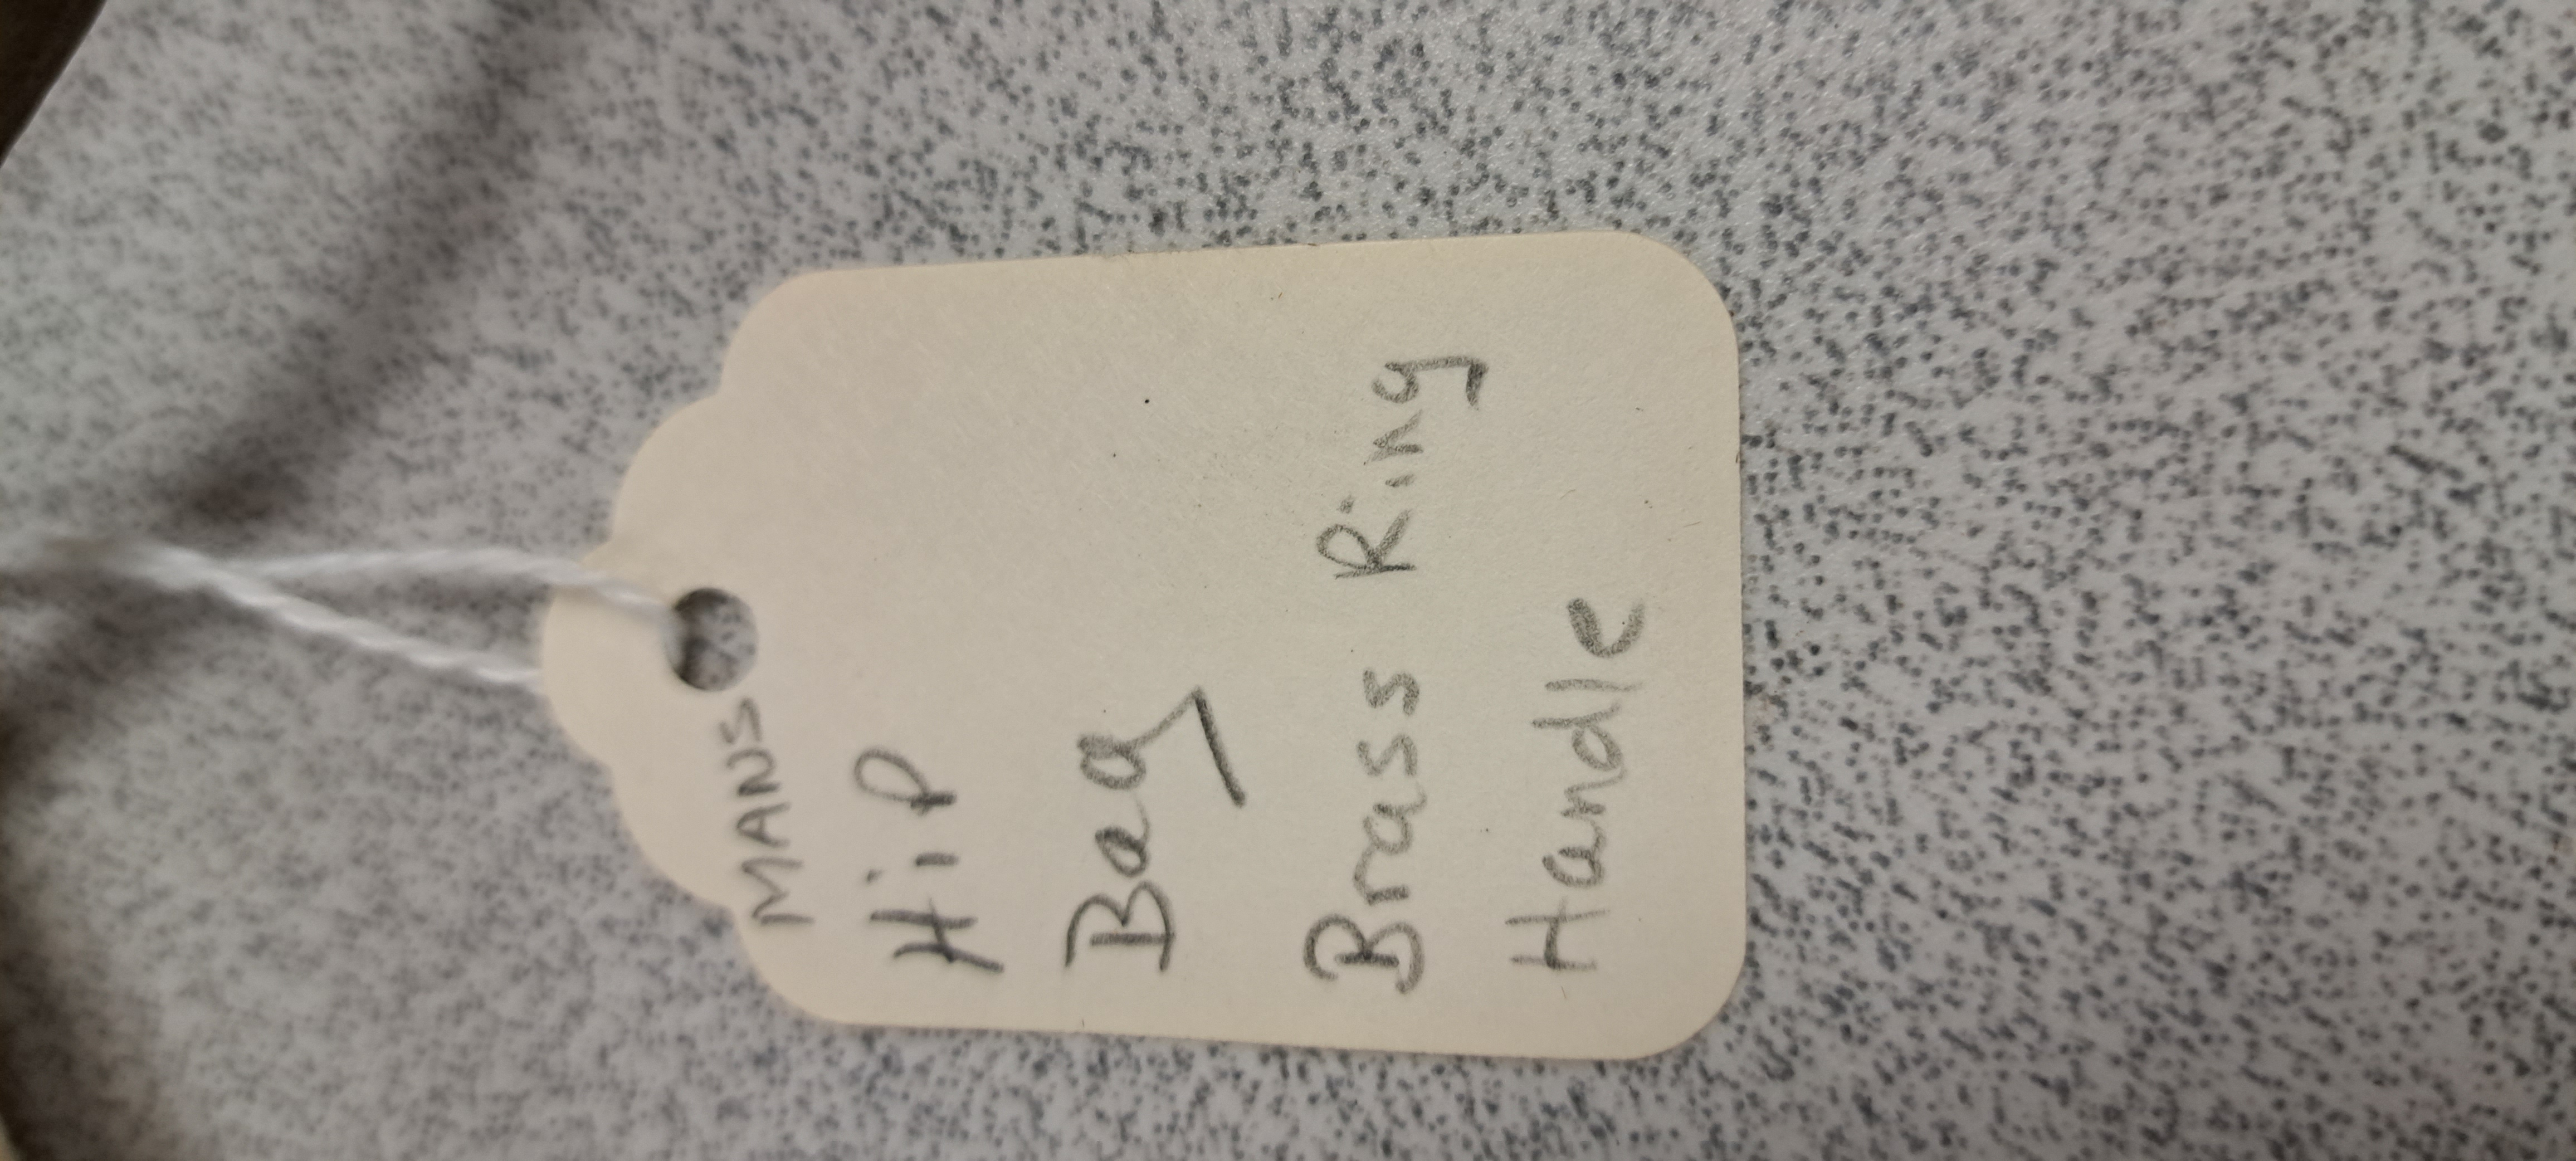 MANS
HiP
Bag
Brass Ring
Handle